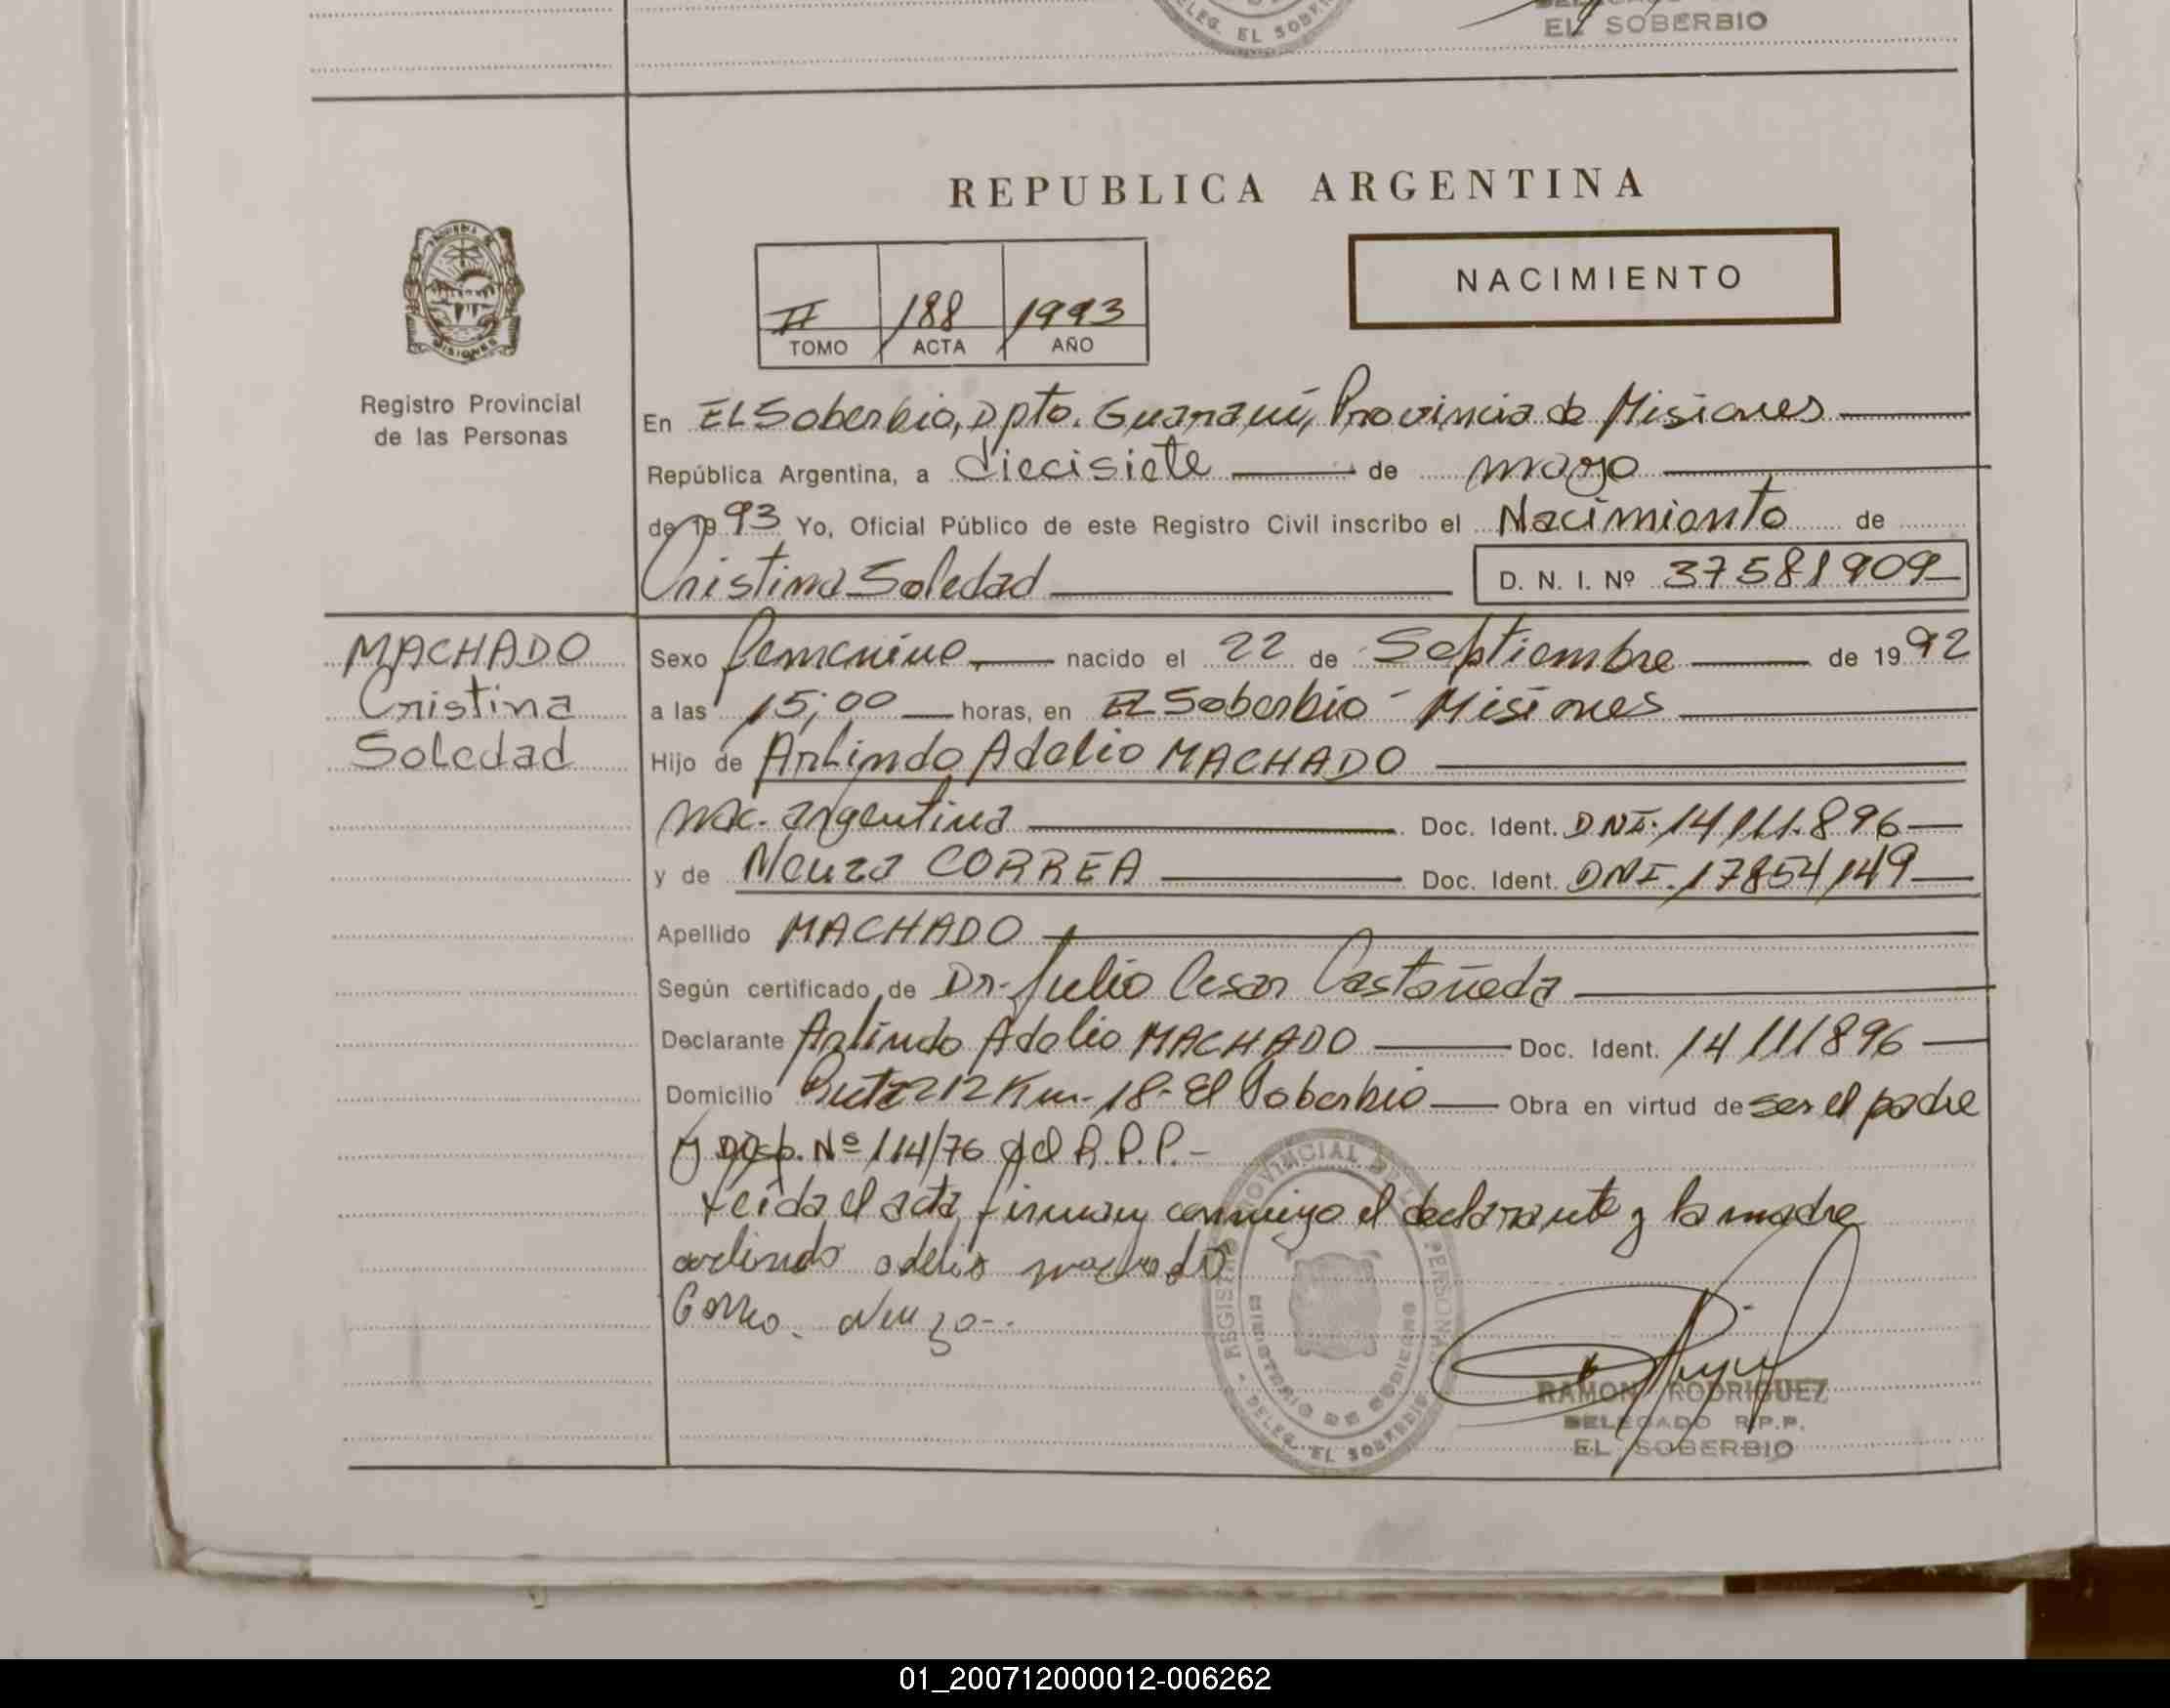 DELEG. EL SOBERBIO
EL SOBERBIO
REPUBLICA ARGENTINA
PROVINCIA DE MISIONES
NACIMIENTO
II 188 1993
TOMO ACTA AÑO
Registro Provincial
de las Personas
En El Soberbio, Dpto. Guaraní, Provincia de Misiones
República Argentina, a diecisiete de mayo
de 1993 Yo, Oficial Público de este Registro Civil inscribo el Nacimiento de
Cristina Soledad D. N. I. Nº 37581909
MACHADO
Cristina
Soledad
Sexo femenino nacido el 22 de Septiembre de 1992
a las 15,00 horas, en El Soberbio - Misiones
Hijo de Arlindo Adelio MACHADO
nac. argentina Doc. Ident. DNI. 14.111.896
y de Neuza CORREA Doc. Ident. DNI. 17854149
Apellido MACHADO
Según certificado de Dr. Julio Cesar Castañeda
Declarante Arlindo Adelio MACHADO Doc. Ident. 14111896
Domicilio Ruta 212 Km. 18 - El Soberbio Obra en virtud de ser el padre
y Disp. Nº 114/76 del R.P.P.-
Leída el acta, firman conmigo el declarante y la madre
arlindo adelio machado
Correa Neuza
REGISTRO PROVINCIAL DE LAS PERSONAS
MINISTERIO DE GOBIERNO
DELEG. EL SOBERBIO
RAMON RODRIGUEZ
DELEGADO R.P.P.
EL SOBERBIO
01_200712000012-006262